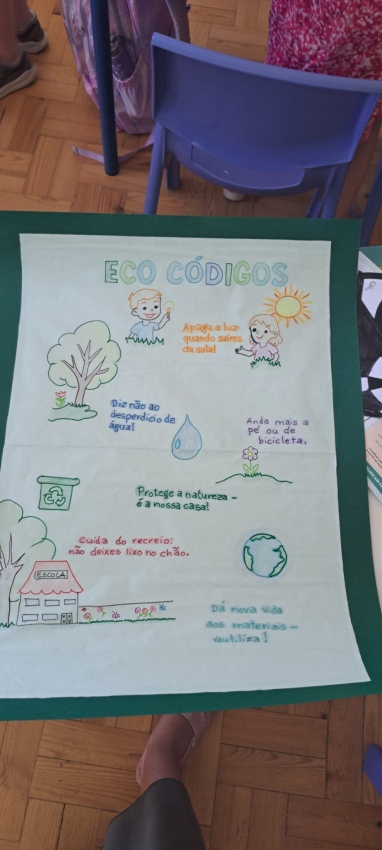 ECO CÓDIGOS
Apaga a luz
quando saíres
da sala!
Diz não ao
desperdício de
água!
Anda mais a
pé ou de
bicicleta.
Protege a natureza -
é a nossa casa!
Cuida do recreio:
não deixes lixo no chão.
ESCOLA
Dá nova vida
aos materiais -
reutiliza!